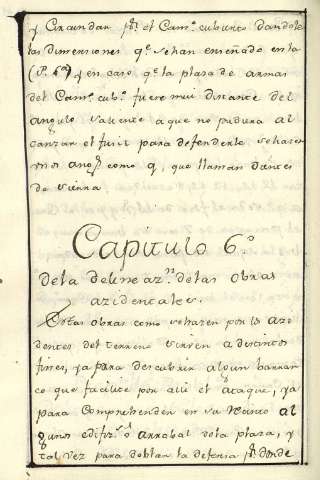 y Circundan pr. el Camo. cubierto dandole
las dimensiones qe. se han enseñado en la
(P. 6a) y en caso qe. la plaza de armas
del Camo. cubo. fuere mui distante del
angulo saliente a que no pudiera al
canzar el fusil para defenderle se hazen
unos angs. como q, que llaman dientes
de sierra
Capitulo 6.o
de la delineazn. de las obras
azidentales.
Estas obras como se hazen por los azi
dentes del terreno sirven a distintos
fines, ya para descubrir algun barran
co que facilite por alli el ataque, ya
para Comprehender en su recinto al
gunos edifizs. o arrabal de la plaza, y
tal vez para doblar la defensa pr. donde